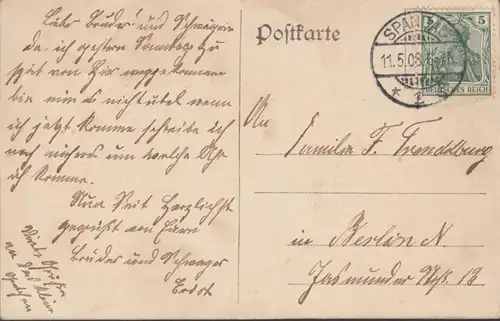 Liebe Bruder und Schwägerin
da ich gestern Sonntags zu
spät von hier weggekommen
bin nim es nicht übel wenn
ich jetzt komme schreibe ich
noch nähers um welche Uhr
ich komme.
Nun Seit Herzlichst
gegrüßt von Euren
Bruder und Schwager
Postkarte
SPANDAU
11.5.08
* 1 *
5
DEUTSCHES REICH
An
Familie F. Trendelburg
in Berlin N
Jasmunder Str. 13